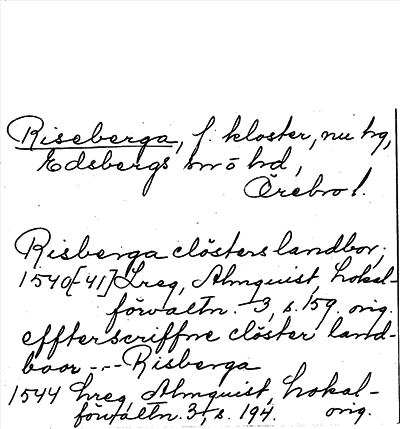 Riseberga, f. kloster, nu hg,
Edsbergs sn o hd,
Örebro l.
Risberga clösters landbor;
1540[-41] Lreg, Almquist, Lokal-
förvaltn. 3, s. 159. orig.
effterscriffne clöster land-
boor --- Risberga
1544 Lreg, Almquist, Lokal-
förvaltn. 3, s. 194. orig.